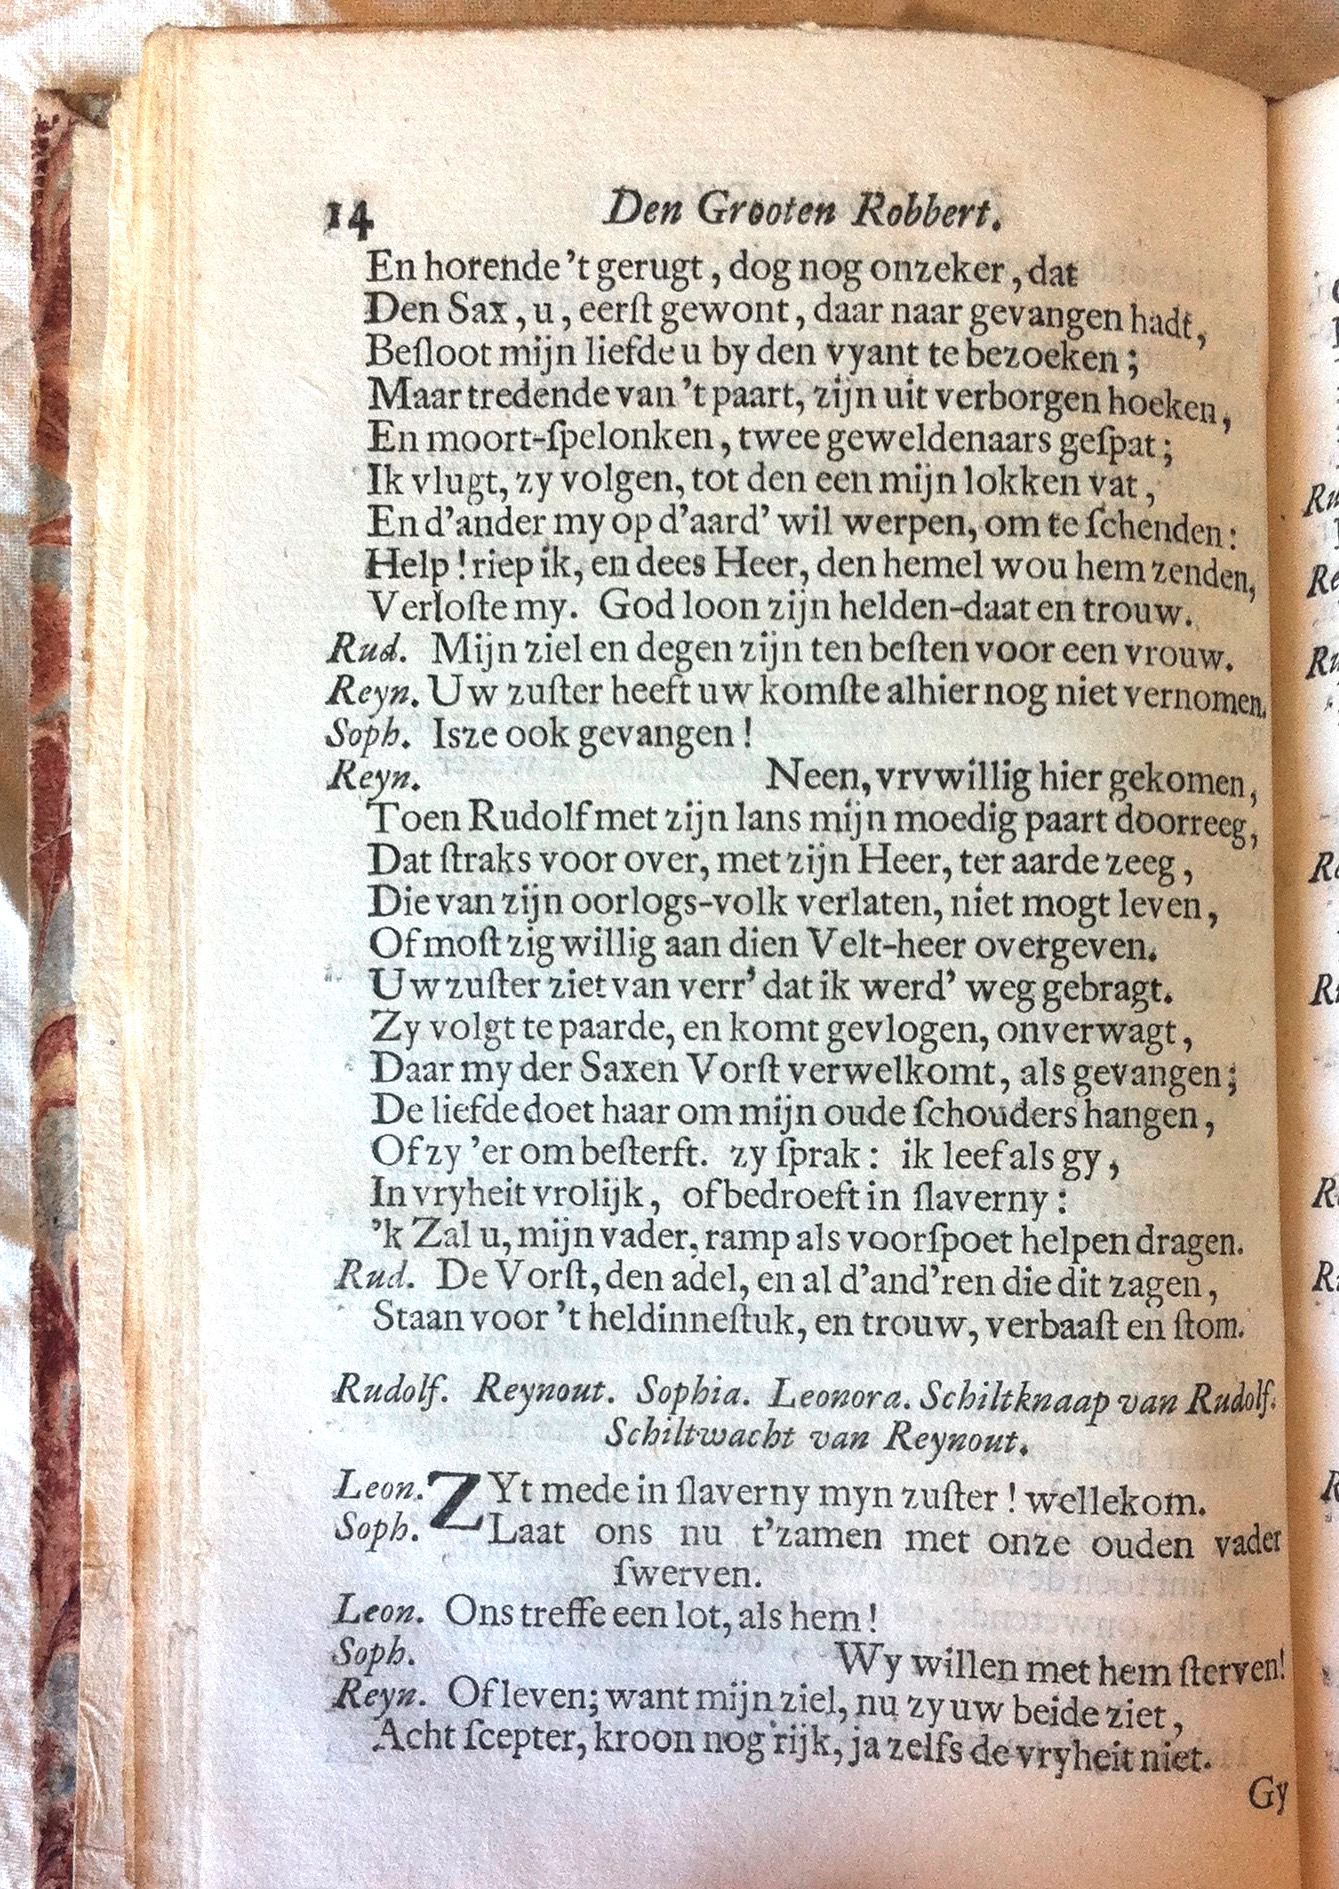 14 Den Grooten Robbert.
En horende 't gerugt, dog nog onzeker, dat
Den Sax, u, eerſt gewont, daar naar gevangen hadt,
Beſloot mijn liefde u by den vyant te bezoeken;
Maar tredende van 't paart, zijn uit verborgen hoeken,
En moort-ſpelonken, twee geweldenaars geſpat;
Ik vlugt, zy volgen, tot den een mijn lokken vat,
En d'ander my op d'aard' wil werpen, om te ſchenden:
Help! riep ik, en dees Heer, den hemel wou hem zenden,
Verloſte my. God loon zijn helden-daat en trouw.
Rud. Mijn ziel en degen zijn ten beſten voor een vrouw.
Reyn. Uw zuſter heeft uw komſte alhier nog niet vernomen.
Soph. Isze ook gevangen!
Reyn. Neen, vrvwillig hier gekomen,
Toen Rudolf met zijn lans mijn moedig paart doorreeg,
Dat ſtraks voor over, met zijn Heer, ter aarde zeeg,
Die van zijn oorlogs-volk verlaten, niet mogt leven,
Of moſt zig willig aan dien Velt-heer overgeven.
Uw zuſter ziet van verr' dat ik werd' weg gebragt.
Zy volgt te paarde, en komt gevlogen, onverwagt,
Daar my der Saxen Vorſt verwelkomt, als gevangen;
De liefde doet haar om mijn oude ſchouders hangen,
Of zy 'er om beſterft. zy ſprak: ik leef als gy,
In vryheit vrolijk, of bedroeft in ſlaverny:
'k Zal u, mijn vader, ramp als voorſpoet helpen dragen.
Rud. De Vorſt, den adel, en al d'and'ren die dit zagen,
Staan voor 't heldinneſtuk, en trouw, verbaaſt en ſtom.
Rudolf. Reynout. Sophia. Leonora. Schiltknaap van Rudolf.
Schiltwacht van Reynout.
Leon. ZYt mede in ſlaverny myn zuſter! wellekom.
Soph. Laat ons nu t'zamen met onze ouden vader
ſwerven.
Leon. Ons treffe een lot, als hem!
Soph. Wy willen met hem ſterven!
Reyn. Of leven; want mijn ziel, nu zy uw beide ziet,
Acht ſcepter, kroon nog rijk, ja zelfs de vryheit niet.
Gy